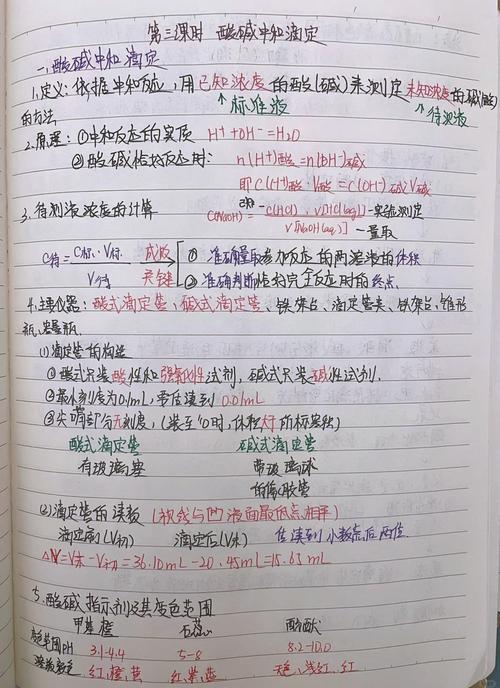 第三课时 酸碱中和滴定
一、酸碱中和滴定
1.定义:依据中和反应,用已知浓度的酸(碱)来测定未知浓度的碱(酸)
的方法 ↑标准液 ↑待测液
2.原理:①中和反应的实质 H⁺+OH⁻=H₂O
②酸碱恰好反应时: n(H⁺)酸=n(OH⁻)碱
即C(H⁺)酸·V酸=C(OH⁻)碱V碱
3.待测液浓度的计算 C(NaOH)=C(HCl)·V[HCl(aq)]-实验测定
V[NaOH(aq)]-量取
C待=C标·V标/V待 成败关键 ①准确量取参加反应的两溶液的体积
②准确判断恰好完全反应时的终点
4.主要仪器:酸式滴定管、碱式滴定管、铁架台、滴定管夹、铁架台、锥形
瓶
(1)滴定管的构造
①酸式只装酸性和强氧化性试剂,碱式只装碱性试剂.
②最小刻度为0.1mL,零后读到0.01mL
③尖嘴部分无刻度,(装至"0"时,体积大于所标容积)
酸式滴定管 碱式滴定管
有玻璃塞 带玻璃球
的橡胶管
(2)滴定管的读数(视线与凹液面最低点相平)
滴定前(V初) 滴定后(V末) 估读到小数点后两位.
△V=V末-V初=36.10ml-20.45ml=15.65ml
5.酸碱指示剂及其变色范围
甲基橙 石蕊 酚酞
变色范围pH 3.1-4.4 5-8 8.2-10.0
溶液颜色 红,橙,黄 红,紫,蓝 无色,浅红,红